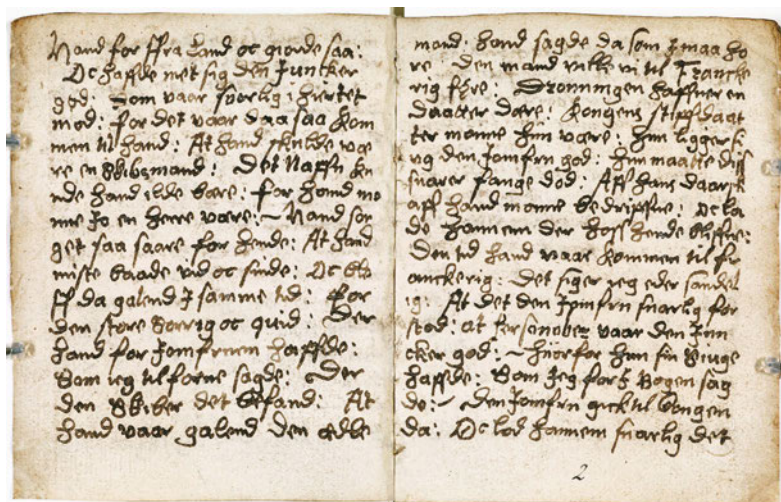 Hand for ffra Land oc giorde saa:
Oc haffde met sig den Juncker
god: Som vaar sorrig i hiertet
mod: for det vaar daa saa kom
men til hand: At hand skulde væ
re en Skibsmand: Det Naffn ku
nde hand ilde bære: for hand mo
nne jo en herre være:~ Hand sør
get saa saare for hende: At hand
miste baade vid oc sinde: Oc ble
ff da galend I samme tid: for
den store Sorrig oc quid: Der
hand for Jomfruen haffde:
Som ieg til forne sagde: Der
den Skiber det befand: At
hand vaar galend den ædle
mand: hand sagde da som I maa hø
re den mand ville vi til Francke
rig føre: Dronningen haffuer en
daatter dære: Kongens stiffdaat
ter monne hun være: hun ligger si
ug den Jomfru god: hun maatte diss
snarer fange død: Aff hans daarsk
aff hand monne bedriffue: Oc la
de hannem der hoss hende bliffue:
Den tid hand vaar kommen til fr
anckerig: Det siger jeg eder sandel
ig: At det den Jomfru snarlig for
stod: at Persenober vaar den Jun
cker god:~ huorfor hun sin Siuge
haffde: Som Jeg for I Bogen sag
de:~ Den Jomfru gick til kongen
da: Oc lod hannem snarlig det
2